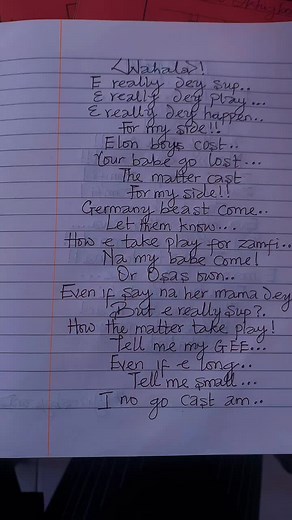 <Wahala>!
E really dey sup..
E really dey play...
E really dey happen..
For my side!!
Elon boys cost..
Your babe go lost...
The matter cast
For my side!!
Germany beast come..
Let them know...
How e take play for zamfi..
Na my babe come!
Or Osas own..
Even if say na her mama dey
But e really sup?.
How the matter take play!
Tell me my GEE...
Even if e long..
Tell me small...
I no go cast am..